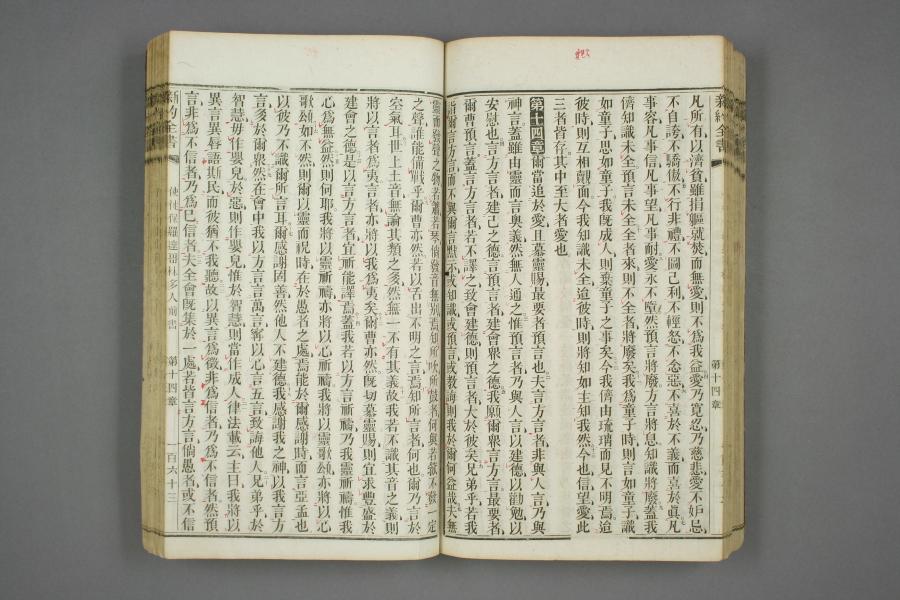 新約全書
第十四章
凡所有以濟貧雖捐軀就焚而無愛則不爲我益愛乃寬忍乃慈悲愛不妒忌
不自誇不驕傲不行非禮不圖己利不輕怒不念惡不喜於不義而喜於眞凡
事容凡事信凡事望凡事耐愛永不墮然預言將廢方言將息知識將廢蓋我
儕知識未全預言未全全者來則不全者將廢矣我爲童子時則言如童子識
如童子思如童子我旣成人則棄童子之事矣今我儕由琉璃而見不明焉迨
彼時則互相覿面今我知識未全迨彼時則將知如主知我然今也信望愛此
三者皆存其中至大者愛也
第十四章爾當追於愛且慕靈賜最要者預言也夫言方言者非與人言乃與
神言蓋雖由靈而言奧義然無人通之惟預言者乃與人言以建德以勸勉以
安慰也言方言者建己之德言預言者建會衆之德我願爾衆言方言最要者
爾預言蓋言方言者若不譯之致會建德則預言者大於彼矣兄弟乎若我
詣爾言方言而不與爾言默示或知識或預言或教誨則我於爾何益哉夫無
靈而發聲之物若簫若琴倘發音無別焉知所吹所鼓者何與若號不發一定
之聲誰能備戰乎爾曹亦然若以舌出不明之言焉知所言者何也爾乃言於
空氣耳世上土音無論其類之多然無一不有其義故我若不識其音之義則
將以言者爲夷言者亦將以我爲夷矣爾曹亦然旣切慕靈賜則宜求豐盛於
建會之德是以言方言者宜祈能譯焉蓋我若以方言祈禱乃我靈祈禱惟我
心爲無益然則何耶我將以靈祈禱亦將以心祈禱我將以靈歌頌亦將以心
歌頌如不然則爾以靈而祝時在於愚者之處焉能於爾感謝時而言亞孟也
以彼乃不識爾所言耳爾感謝固善然他人不建德我感謝我之神以我言方
言多於爾衆然在會中我以方言言萬言寧以心言五言致誨他人兄弟乎於
智慧毋作嬰兒於惡則作嬰兒惟於智慧則當作成人律法載云主曰我將以
異言異唇語斯民而彼猶不我聽故以異言爲徵非爲信者乃爲不信者然預
言非爲不信者乃爲已信者夫全會旣集於一處若皆言方言倘愚者或不信
新約全書
使徒保羅達哥林多人前書
第十四章
一百六十三